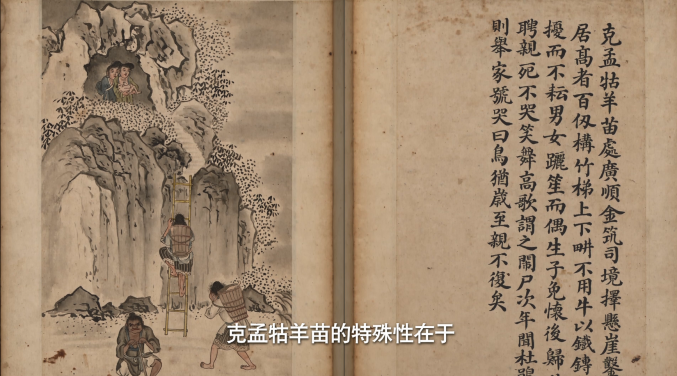 克孟牯羊苗處廣順金筑司境擇懸崖鑿
居髙者百仭構竹梯上下畊不用牛以鐵鏄
擾而不耘男女躧笙而偶生子免懷後歸
聘親死不哭笑舞高歌謂之鬧尸次年聞杜鵑
則舉家號哭曰鳥猶歲至親不復矣
克孟牯羊苗的特殊性在于